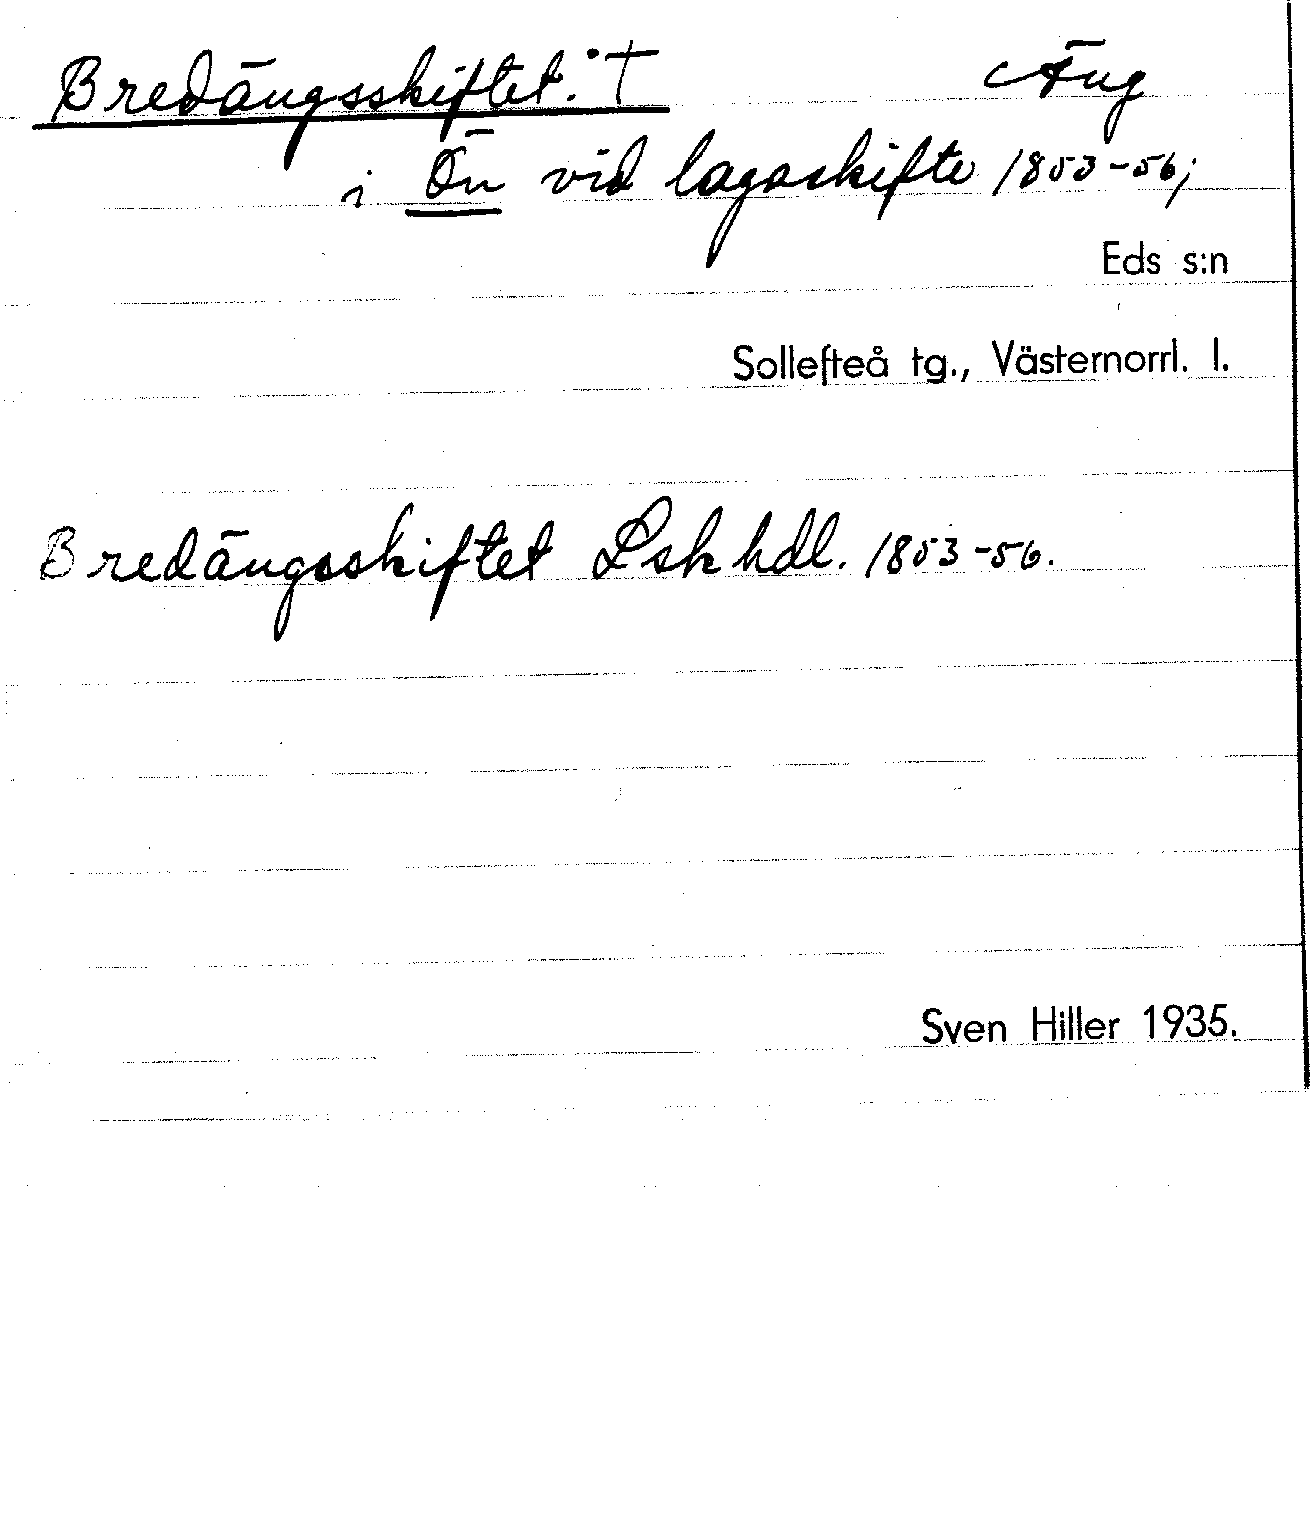 Bredängsskiftet. † Äng
i Ön vid lagaskifte 1853-56;
Eds s:n
Sollefteå tg., Västernorrl. l.
Bredängsskiftet Lskhdl. 1853-56.
Sven Hiller 1935.